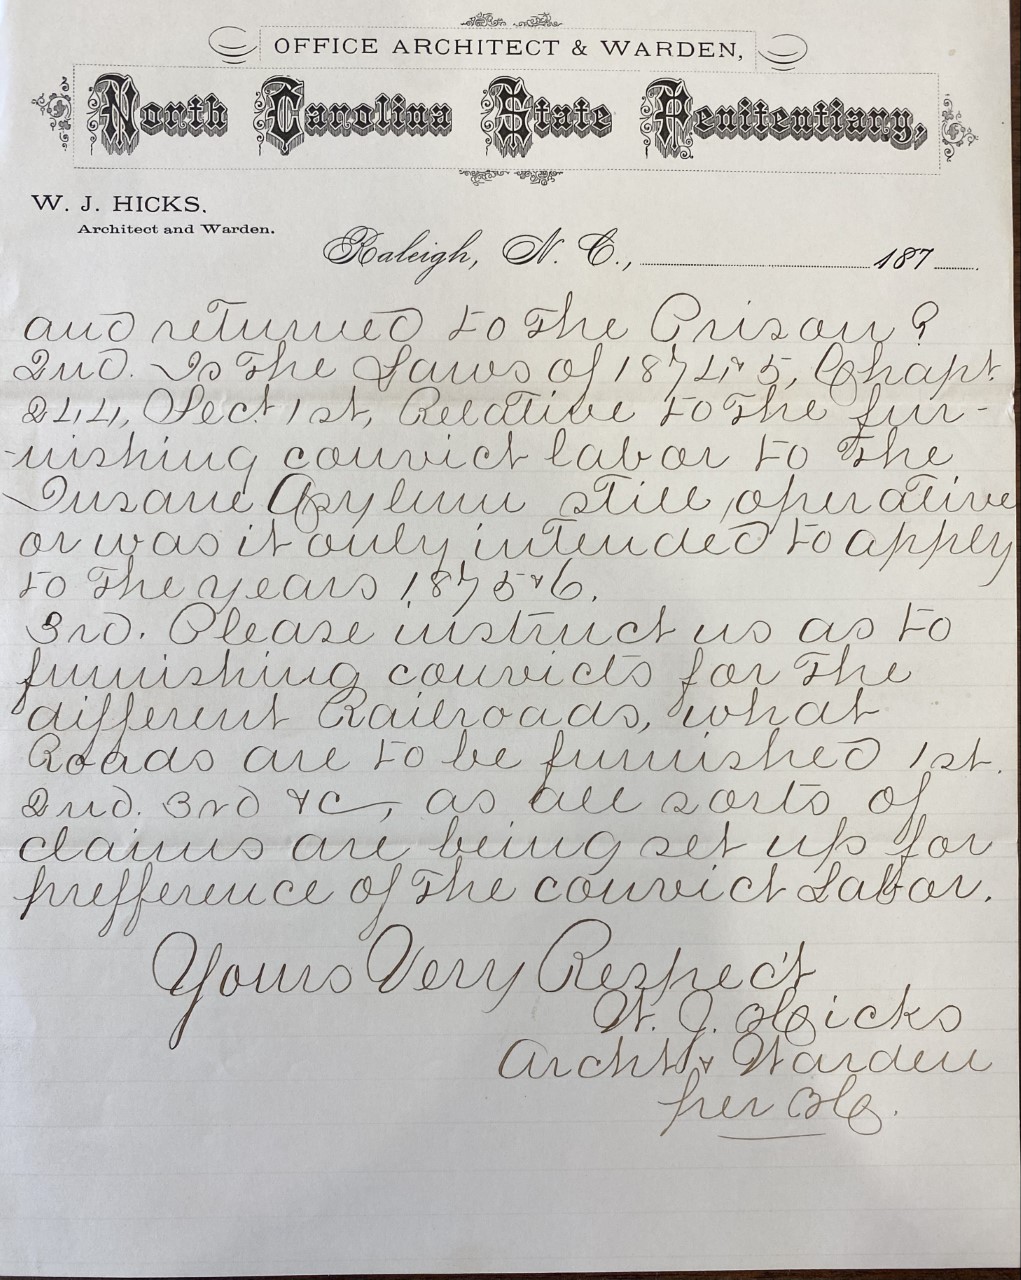 OFFICE ARCHITECT & WARDEN,
North Carolina State Penitentiary,
W. J. HICKS,
Architect and Warden.
Raleigh, N. C., 187
and returned to the Prison?
2nd. Is the Laws of 1874 & 5, Chapt.
244, Sect. 1st, Relative to the fur-
-nishing convict labor to the
Insane Asylum still operative
or was it only intended to apply
to the years 1875 & 6.
3rd. Please instruct us as to
furnishing convicts for the
different Railroads, what
Roads are to be furnished 1st.
2nd. 3rd &c, as all sorts of
claims are being set up for
prefference of the convict Labor.
Yours Very Respect
W. J. Hicks
Archt & Warden
per H.